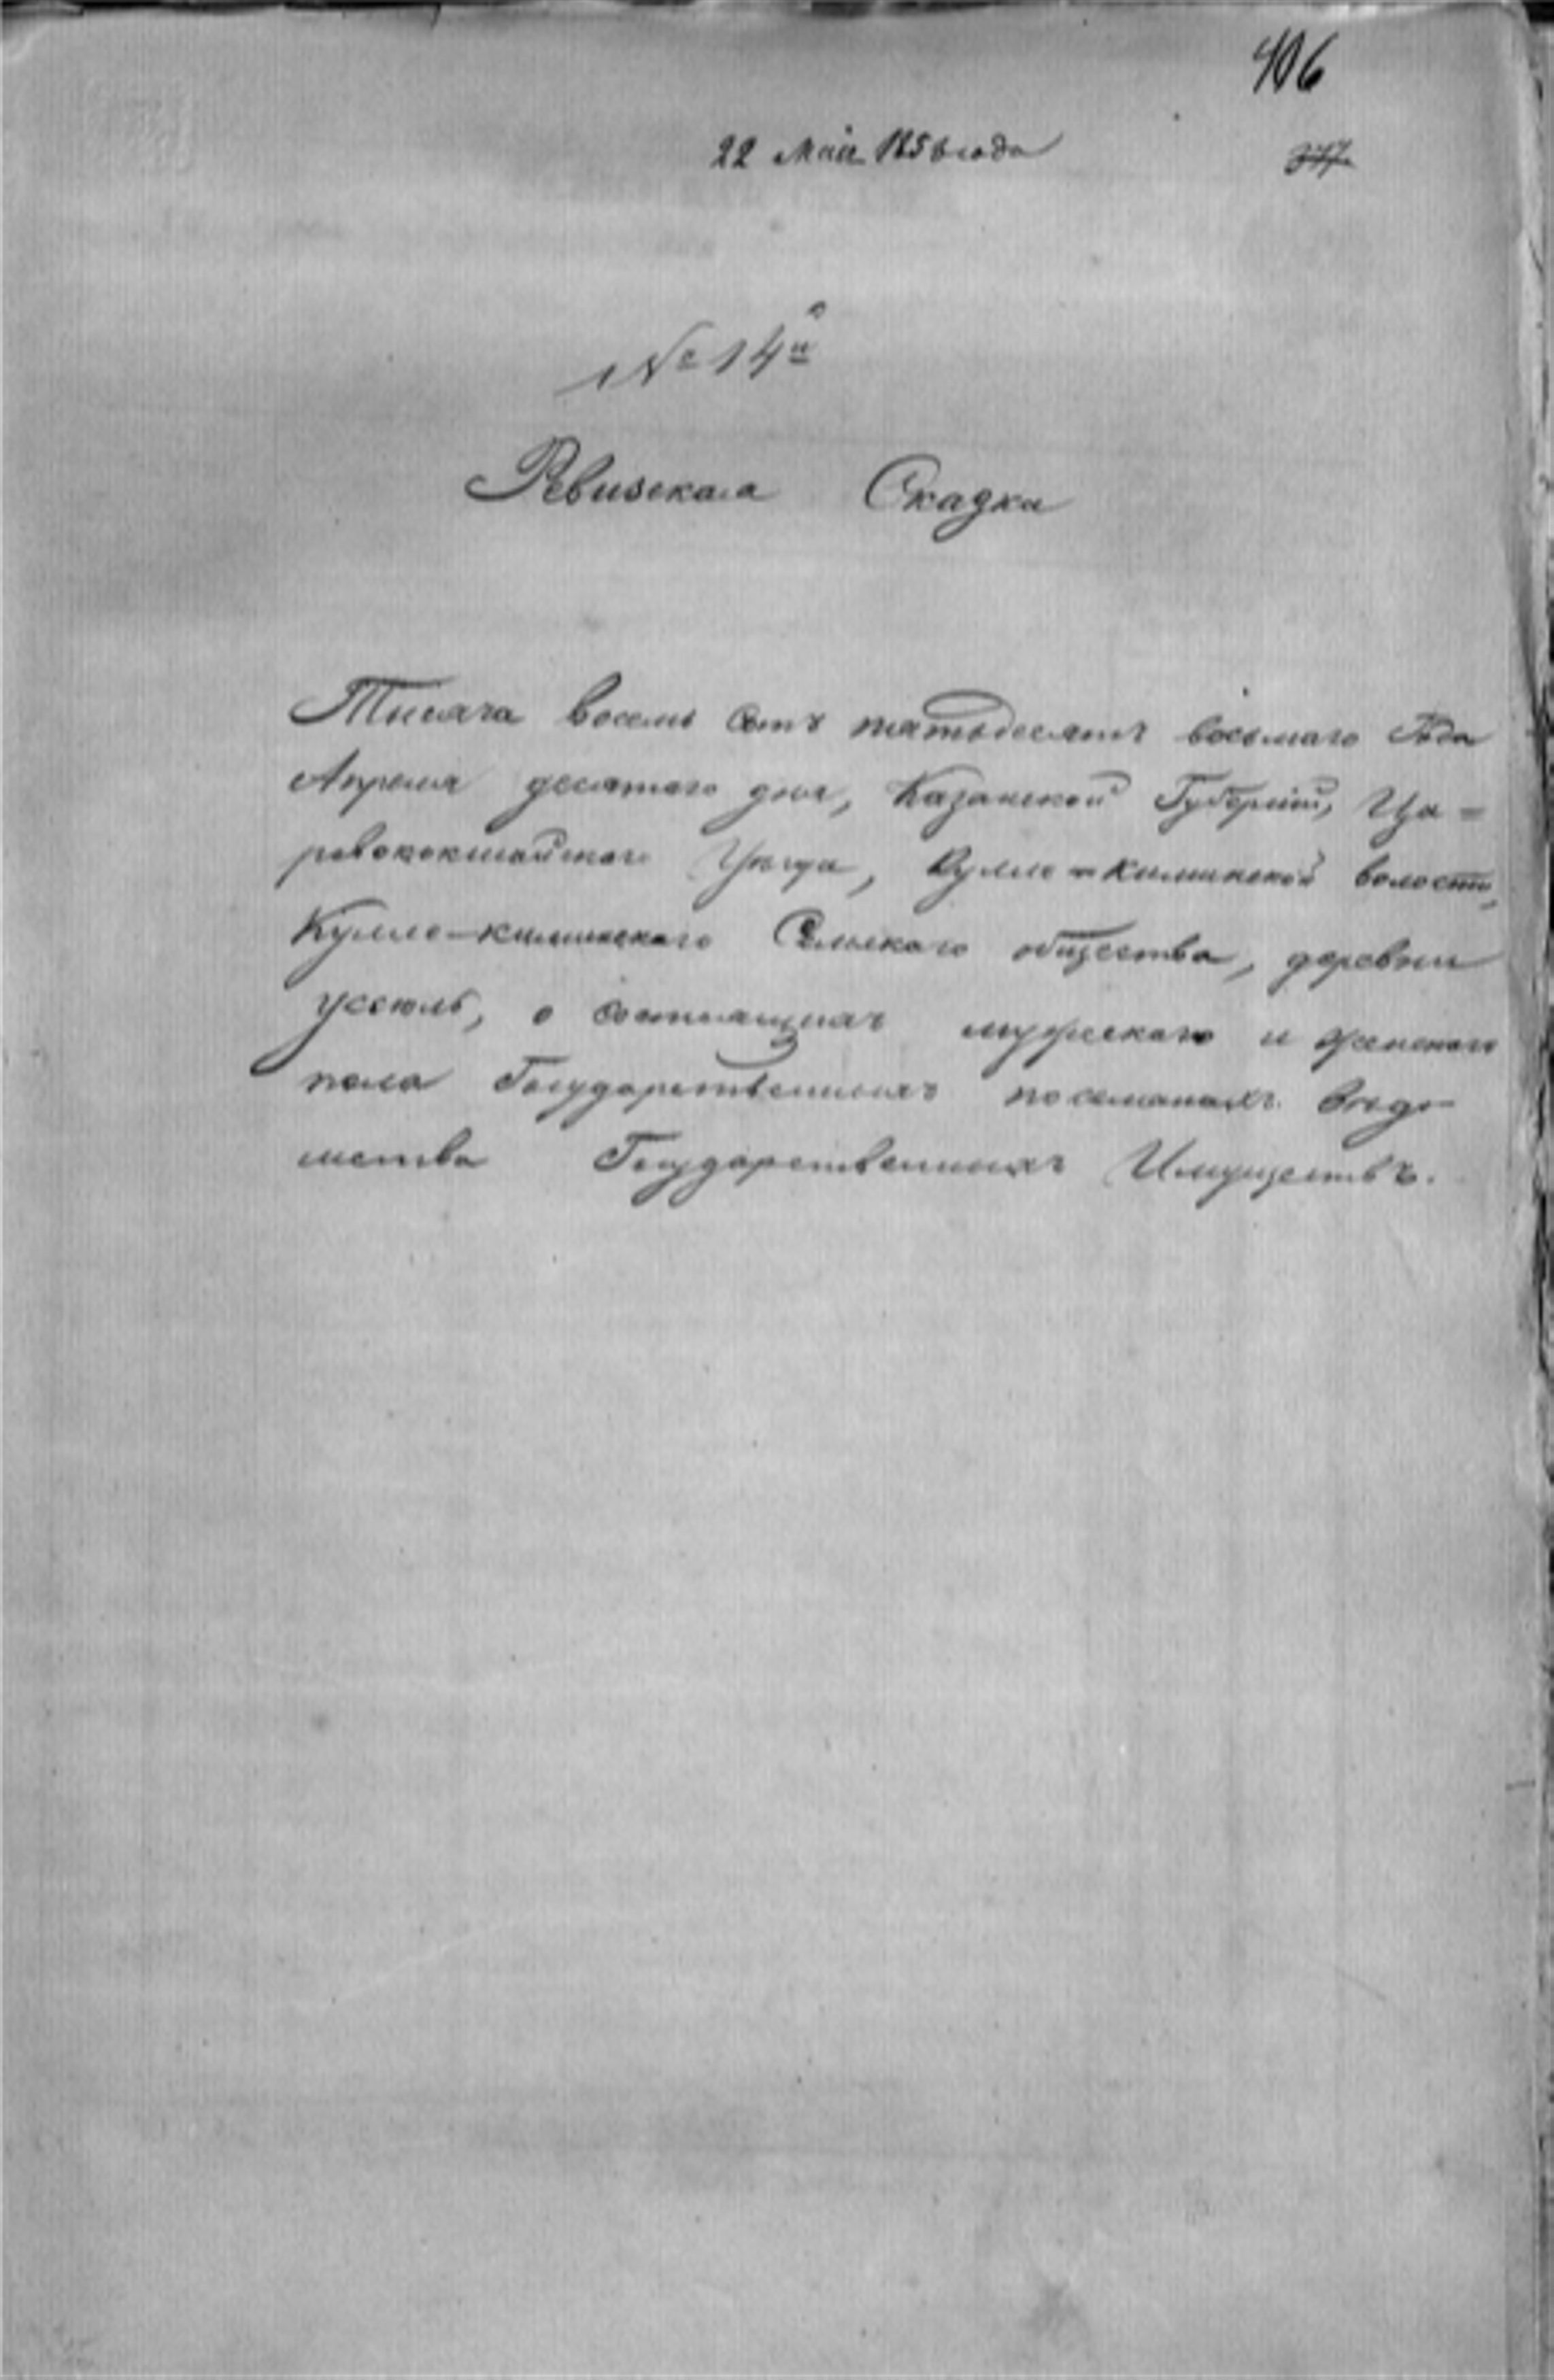 406
22 Мая 1858 года
377
№ 14й
Ревизская Сказка
Тысяча восемь сотъ пятьдесятъ восьмаго Года
Апреля десятаго дня, Казанской Губерніи, Ца=
ревококшайскаго Уѣзда, Кулле-киминской волости,
Кулле-киминскаго Сельскаго общества, деревни
Усюль, о состоящихъ мужескаго и женскаго
пола Государственныхъ поселянахъ вѣдо
мства Государственныхъ Имуществъ.